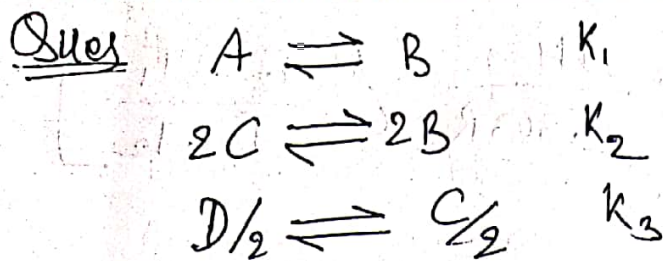 Ques A ⇌ B K₁
2C ⇌ 2B K₂
D/2 ⇌ C/2 K₃